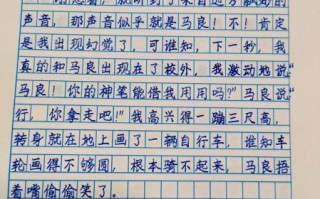 声音，那声音似乎就是马良！不！肯定
是我出现幻觉了，可谁知，下一秒，我
真的和马良出现在了校外，我激动地说“
马良！你的神笔能借我用用吗？”马良说“
行，你拿走吧！”我高兴得一蹦三尺高，
转身就在地上画了一辆自行车，谁知车
轮画得不够圆，根本骑不起来，马良捂
着嘴偷偷笑了。